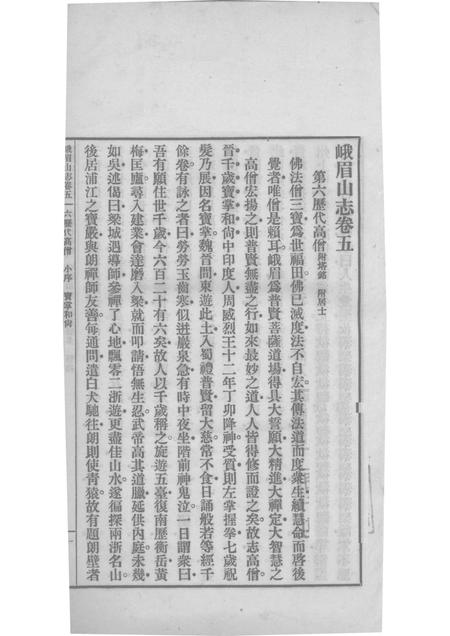 峨眉山志卷五
第六歷代高僧附塔銘 附居士
佛法僧三寶爲世福田佛已滅度法不自宏其傳法道而度衆生續慧命而啓後
覺者唯僧是賴耳峨眉爲普賢菩薩道場得具大誓願大精進大禪定大智慧之
高僧宏揚之則普賢無盡之行如來最妙之道人人皆得修而證之矣故志高僧
晉千歲寶掌和尙中印度人周威烈王十二年丁卯降神受質則左掌握拳七歲祝
髮乃展因名寶掌魏晉間東遊此土入蜀禮普賢留大慈常不食日誦般若等經千
餘卷有詠之者曰勞勞玉齒寒似迸巖泉急有時中夜坐階前神鬼泣一日謂衆曰
吾有願住世千歲今六百二十有六矣故人以千歲稱之旋遊五臺復南歷衡岳黃
梅匡廬尋入建業會達磨入梁就而叩請悟無生忍武帝高其道臘延供內庭未幾
如吳述偈曰梁城遇導師參禪了心地飄零二浙遊更盡佳山水遂徧探兩浙名山
後居浦江之寶嚴與朗禪師友善每通問遣白犬馳往朗則使靑猿故有題朗壁者
峨眉山志卷五 六歷代高僧 小序 寶掌和尙 一